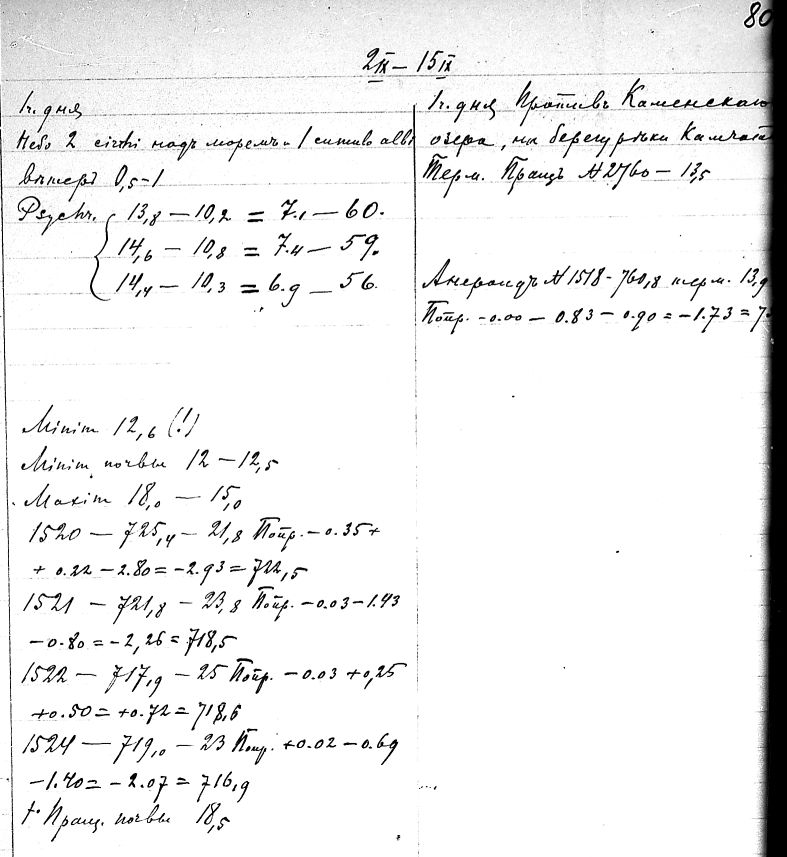 80
2 IX – 15 IX
1 ч. дня
Небо 2 cirrhi надъ моремъ и 1 cumulo albi
вѣтеръ 0,5-1
Psychr. 13,8 – 10,2 = 7.1 – 60.
14,6 – 10,8 = 7.4 – 59.
14,4 – 10,3 = 6.9 – 56.
Minim 12,6 (!)
Minim почвы 12 – 12,5
Maxim 18,0 – 15,0
1520 – 725,4 – 21,8 Попр. – 0.35 +
+ 0.22 – 2.80 = – 2.93 = 722,5
1521 – 721,8 – 23,8 Попр. – 0.03 – 1.43
– 0.80 = – 2,26 = 718,5
1522 – 717,9 – 25 Попр. – 0.03 + 0,25
+ 0.50 = + 0.72 = 718,6
1524 – 719,0 – 23 Попр. + 0.02 – 0.69
– 1.40 = – 2.07 = 716,9
t° Пращ. почвы 18,5
1 ч. дня Противъ Каменскаго
озера, на берегу рѣки Камчат
Терм. Пращъ № 2760 – 13,5
Анероидъ № 1518 - 760,8 терм. 13,9
Попр. – 0.00 – 0.83 – 0.90 = – 1.73 = 7